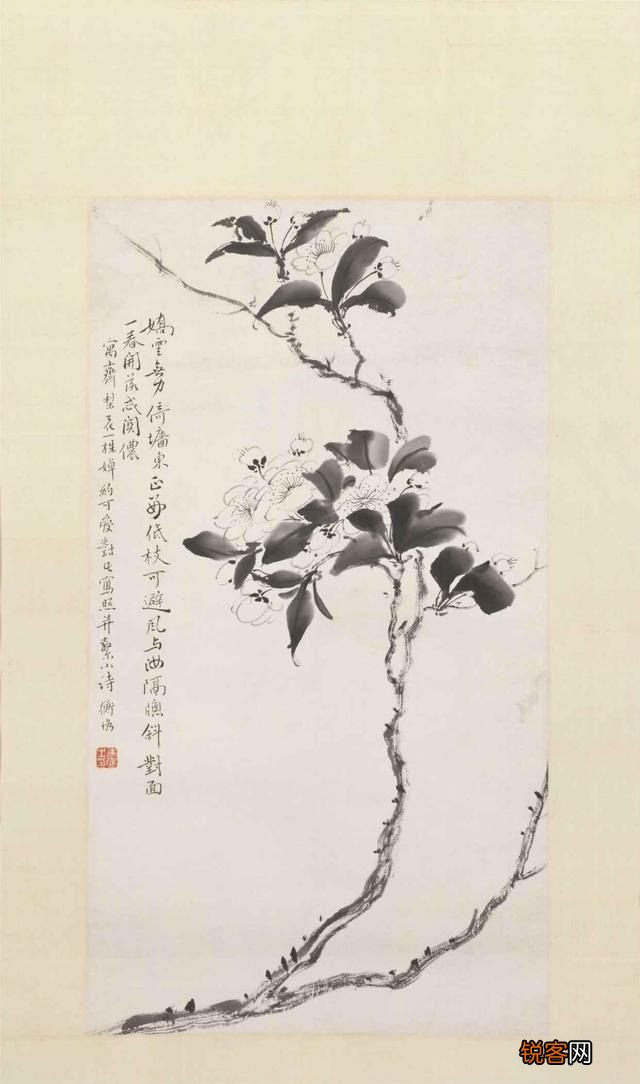 嬌雲無力倚墻東正為低枝可避風与汝隔牕斜對面
一春開落忒関儂
寓齋梨花一株婥約可愛對之寫照并繫小詩 衡恪
锐客网